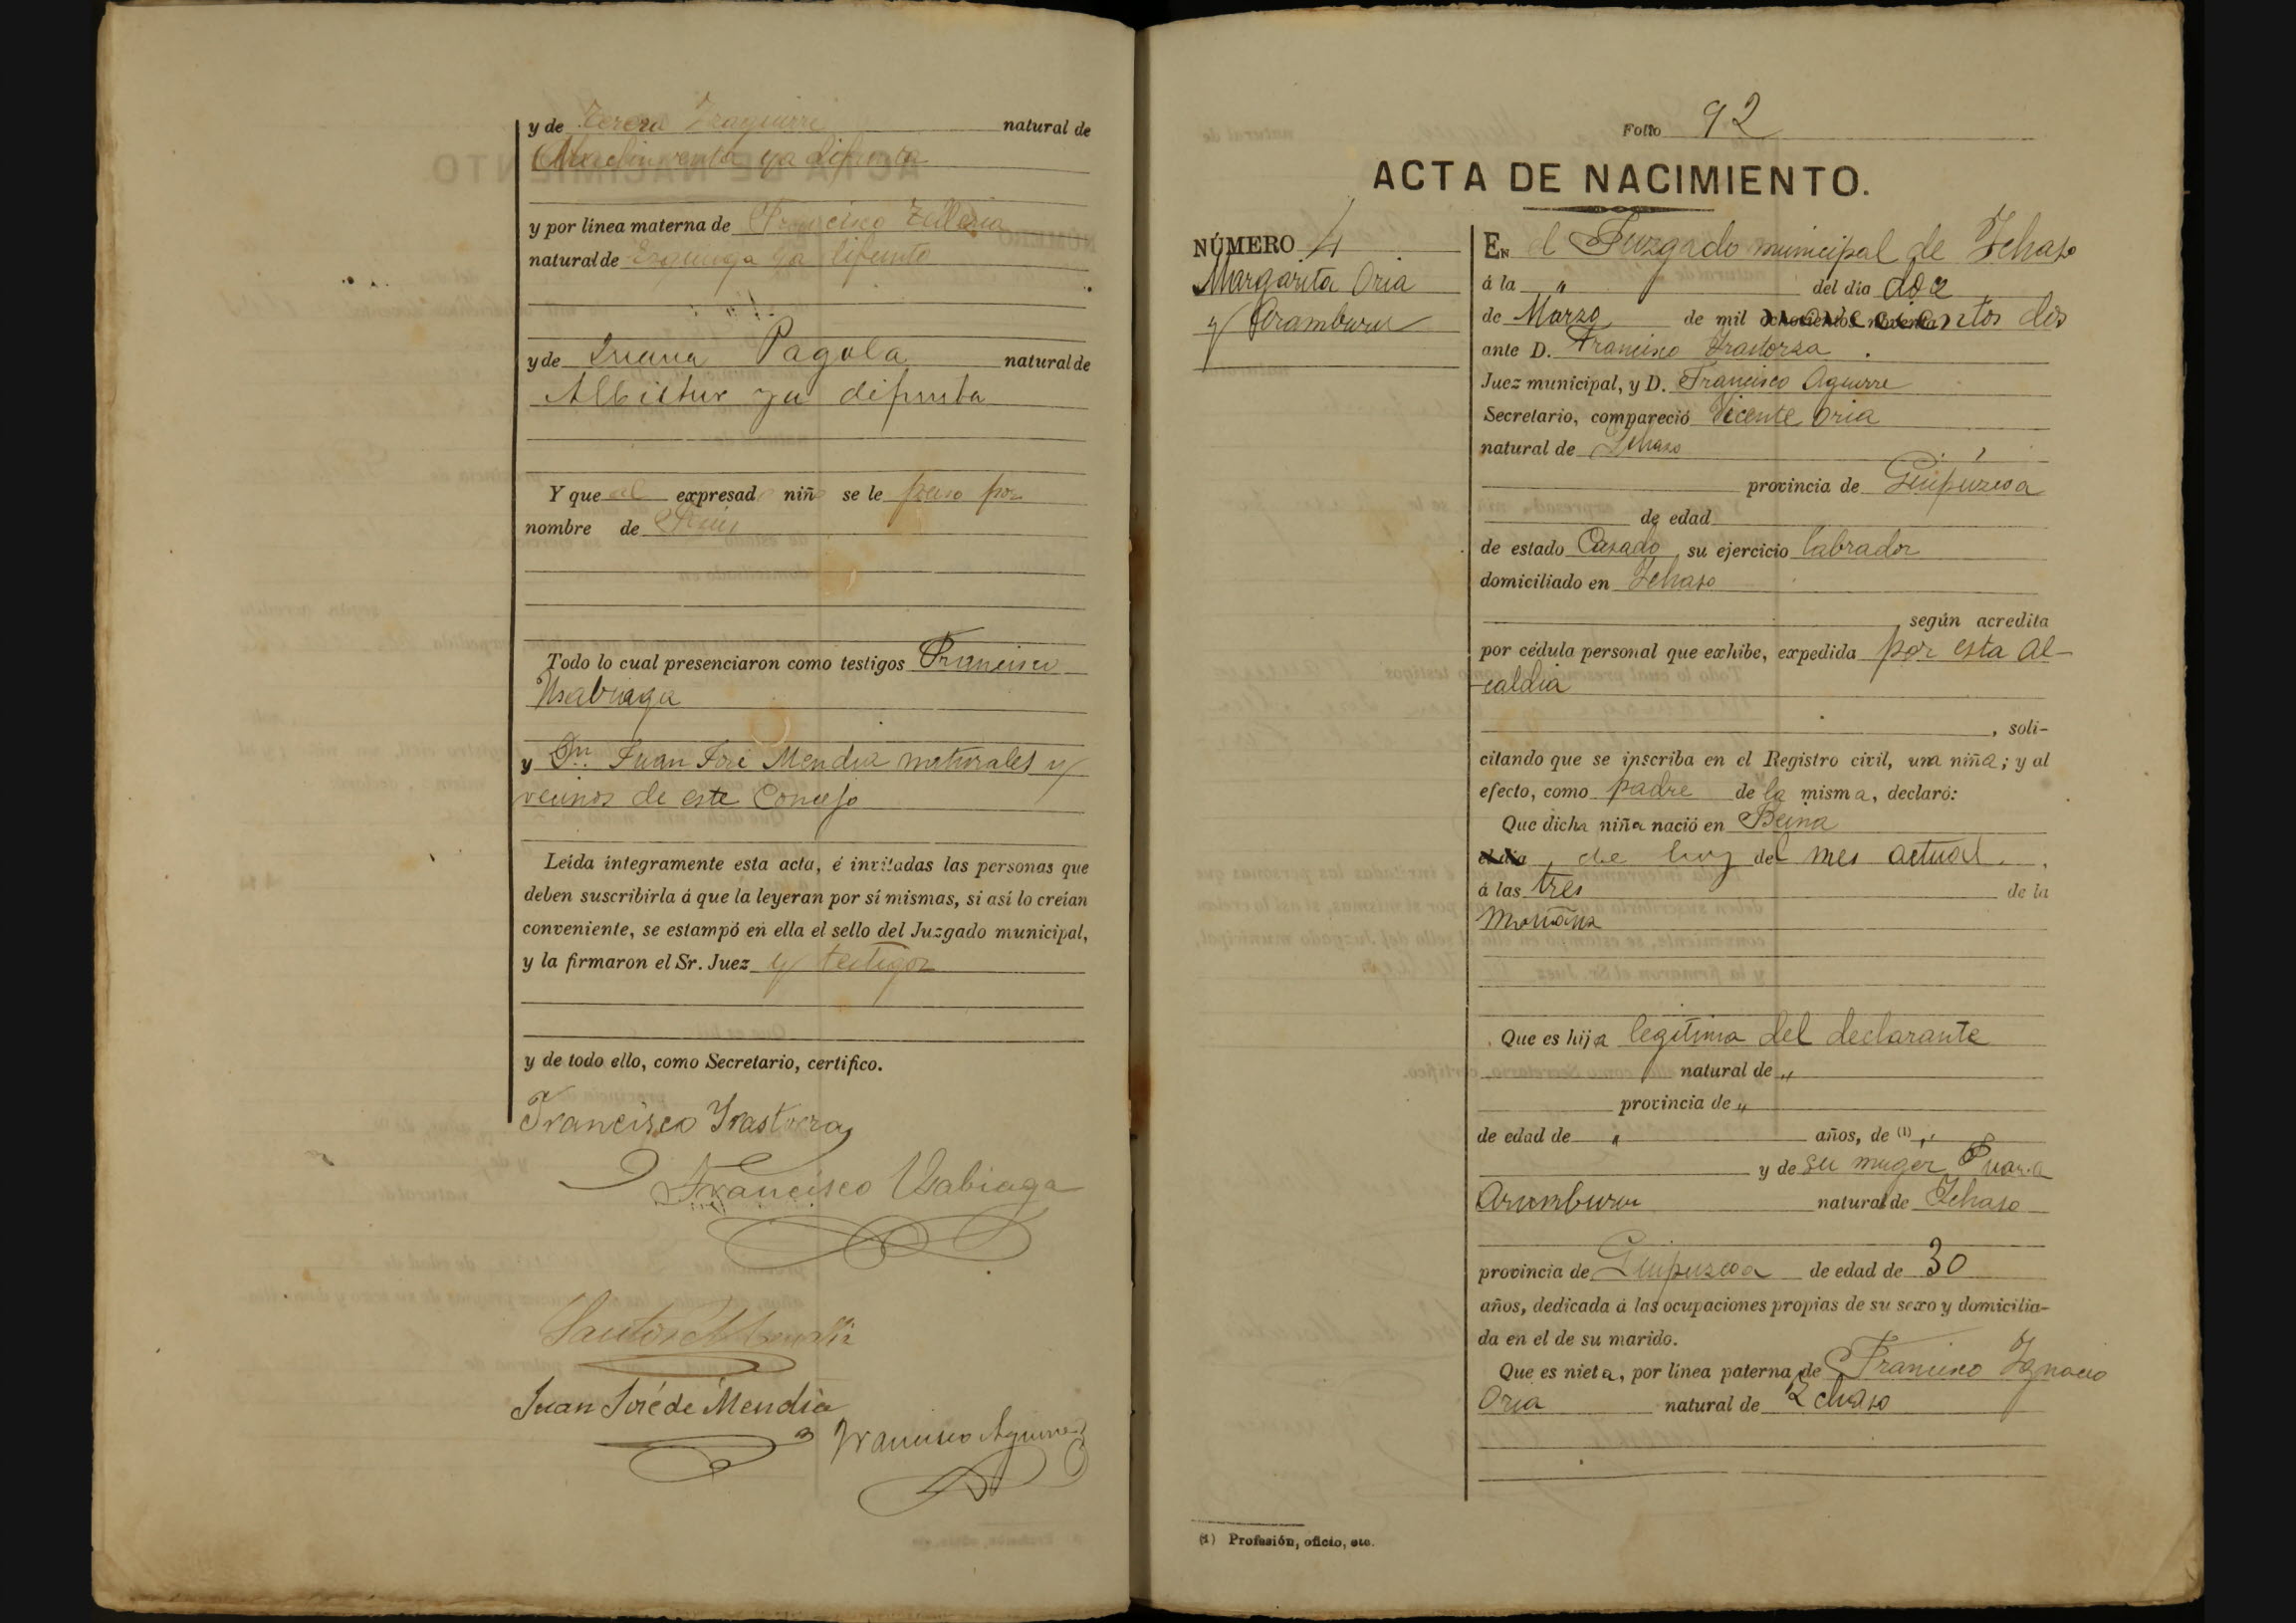 y de Teresa Izaguirre natural de
ya difunta
y por línea materna de Francisco Telleria
natural de Ezquioga ya difunto
y de Juana Pagola natural de
Albistur ya difunta
Y que al expresado niño se le puso por
nombre de
Todo lo cual presenciaron como testigos Francisco
Usabiaga
y Dn. Juan José Mendia naturales y
vecinos de este Concejo
Leída íntegramente esta acta, é invitadas las personas que
deben suscribirla á que la leyeran por sí mismas, si así lo creían
conveniente, se estampó en ella el sello del Juzgado municipal,
y la firmaron el Sr. Juez y testigos
y de todo ello, como Secretario, certifico.
Francisco Irastorza
Francisco Usabiaga
Juan José de Mendia
Francisco Aguirre
Folio 92
ACTA DE NACIMIENTO.
NÚMERO 4
Margarita Oria
y Aramburu
EN el Juzgado municipal de Ichaso
á la " del día doce
de Marzo de mil novecientos dos
ante D. Francisco Irastorza
Juez municipal, y D. Francisco Aguirre
Secretario, compareció Vicente Oria
natural de Ichaso
provincia de Guipuzcoa
de edad
de estado Casado, su ejercicio labrador
domiciliado en Ichaso
, según acredita
por cédula personal que exhibe, expedida por esta Al-
caldia
, soli-
citando que se inscriba en el Registro civil, una niña; y al
efecto, como padre de la misma, declaró:
Que dicha niña nació en
el día, de hoy del mes actual
á las tres de la
mañana
Que es hija legítima del declarante
natural de "
provincia de "
de edad de " años, de (1) "
y de su muger
Aramburu natural de Ichaso
provincia de Guipuzcoa de edad de 30
años, dedicada á las ocupaciones propias de su sexo y domicilia-
da en el de su marido.
Que es nieta, por línea paterna de Francisco Ignacio
Oria natural de Ichaso
(1) Profesión, oficio, etc.